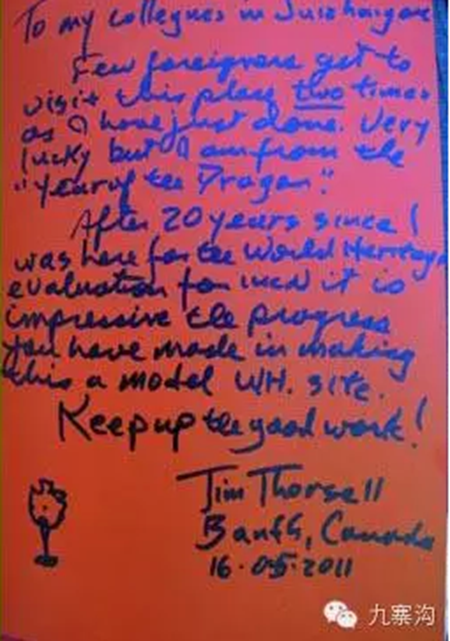 To my collegues in Juizhaigou
Few foreigners get to
visit this place two times
as I have just done. Very
lucky but I am from the
"year of the Dragon".
After 20 years since I
was here for the World Herritage
evaluation for IUCN it is
impressive the progress
you have made in making
this a model WH. site.
Keep up the good work!
Jim Thorsell
Banff, Canada
16.05.2011
九寨沟